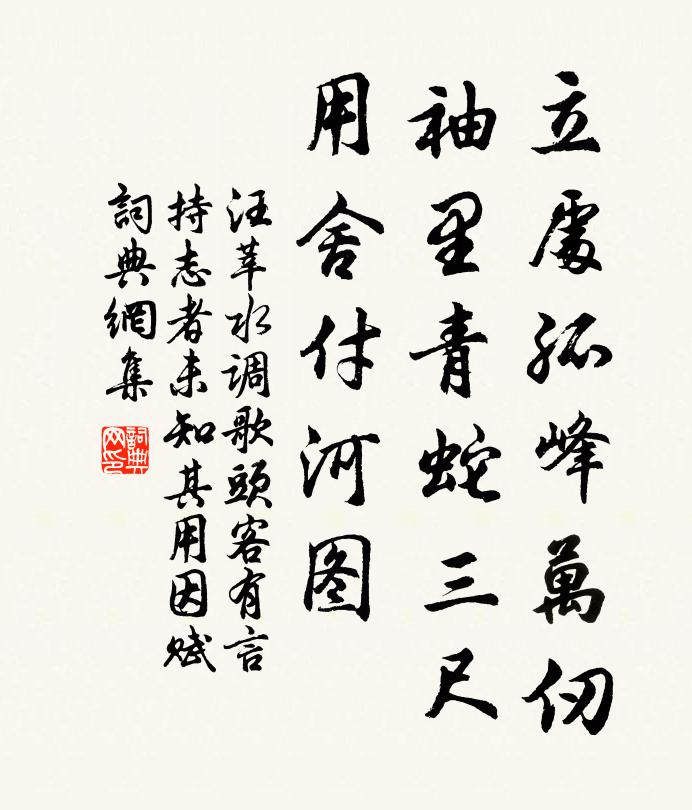 立處孤峰萬仞
袖里青蛇三尺
用舍付河图
汪莘水调歌頭客有言
持志者未知其用因赋
詞典網集
詞典网印